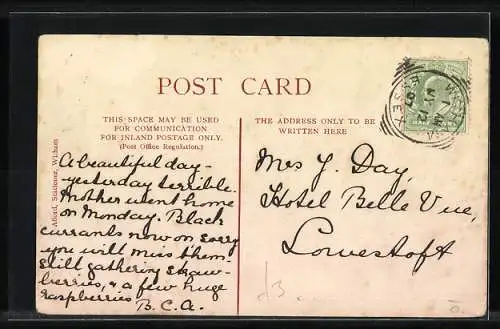 POST CARD
THIS SPACE MAY BE USED
FOR COMMUNICATION
FOR INLAND POSTAGE ONLY.
(Post Office Regulation.)
THE ADDRESS ONLY TO BE
WRITTEN HERE
Afford, Stationer, Witham
A beautiful day -
yesterday terrible.
Mother went home
on Monday. Black
currants now on sorry
you will miss them -
still gathering straw-
berries, & a few huge
raspberries B.C.A.
Mrs J. Day,
Hotel Belle Vue,
Lowestoft
WITHAM
ESSEX